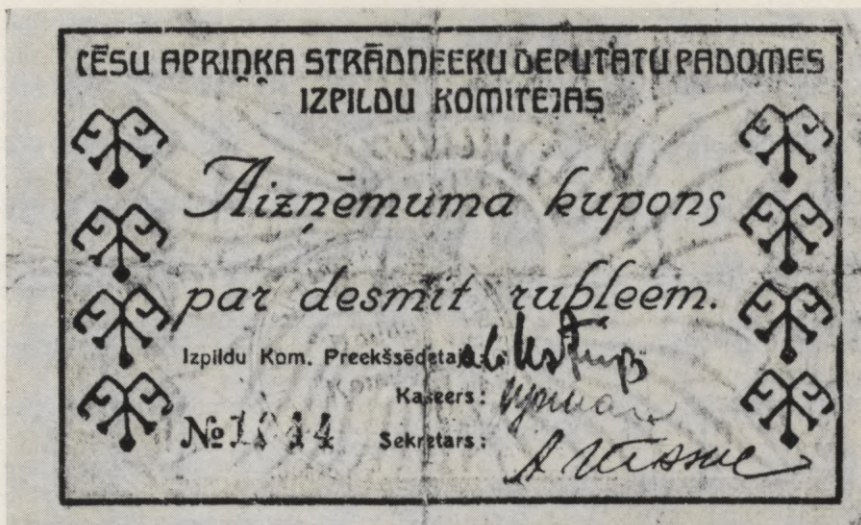 CĒSU APRIŅĶA STRĀDNEEKU DEPUTATU PADOMES
IZPILDU KOMITEJAS
Aizņēmuma kupons
par desmit rubleem.
Izpildu Kom. Preekšsēdetajs:
Kaseers:
№ Sekretars: